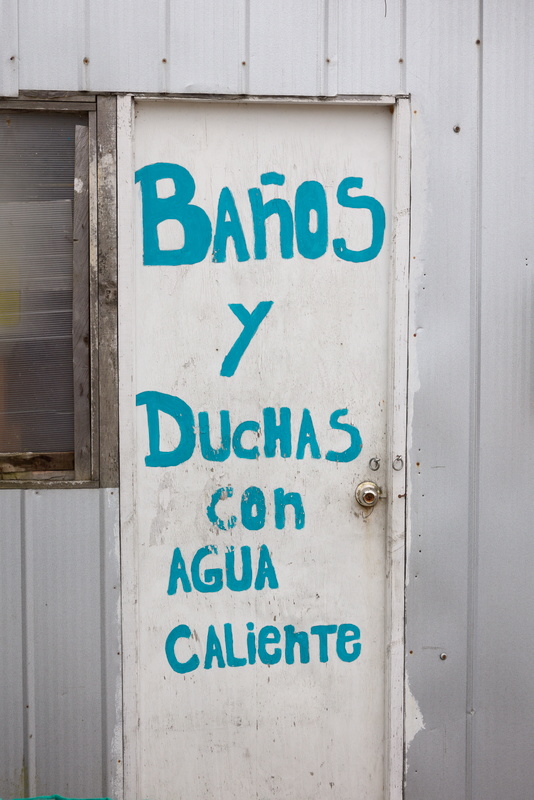 Baños
y
Duchas
con
Agua
Caliente